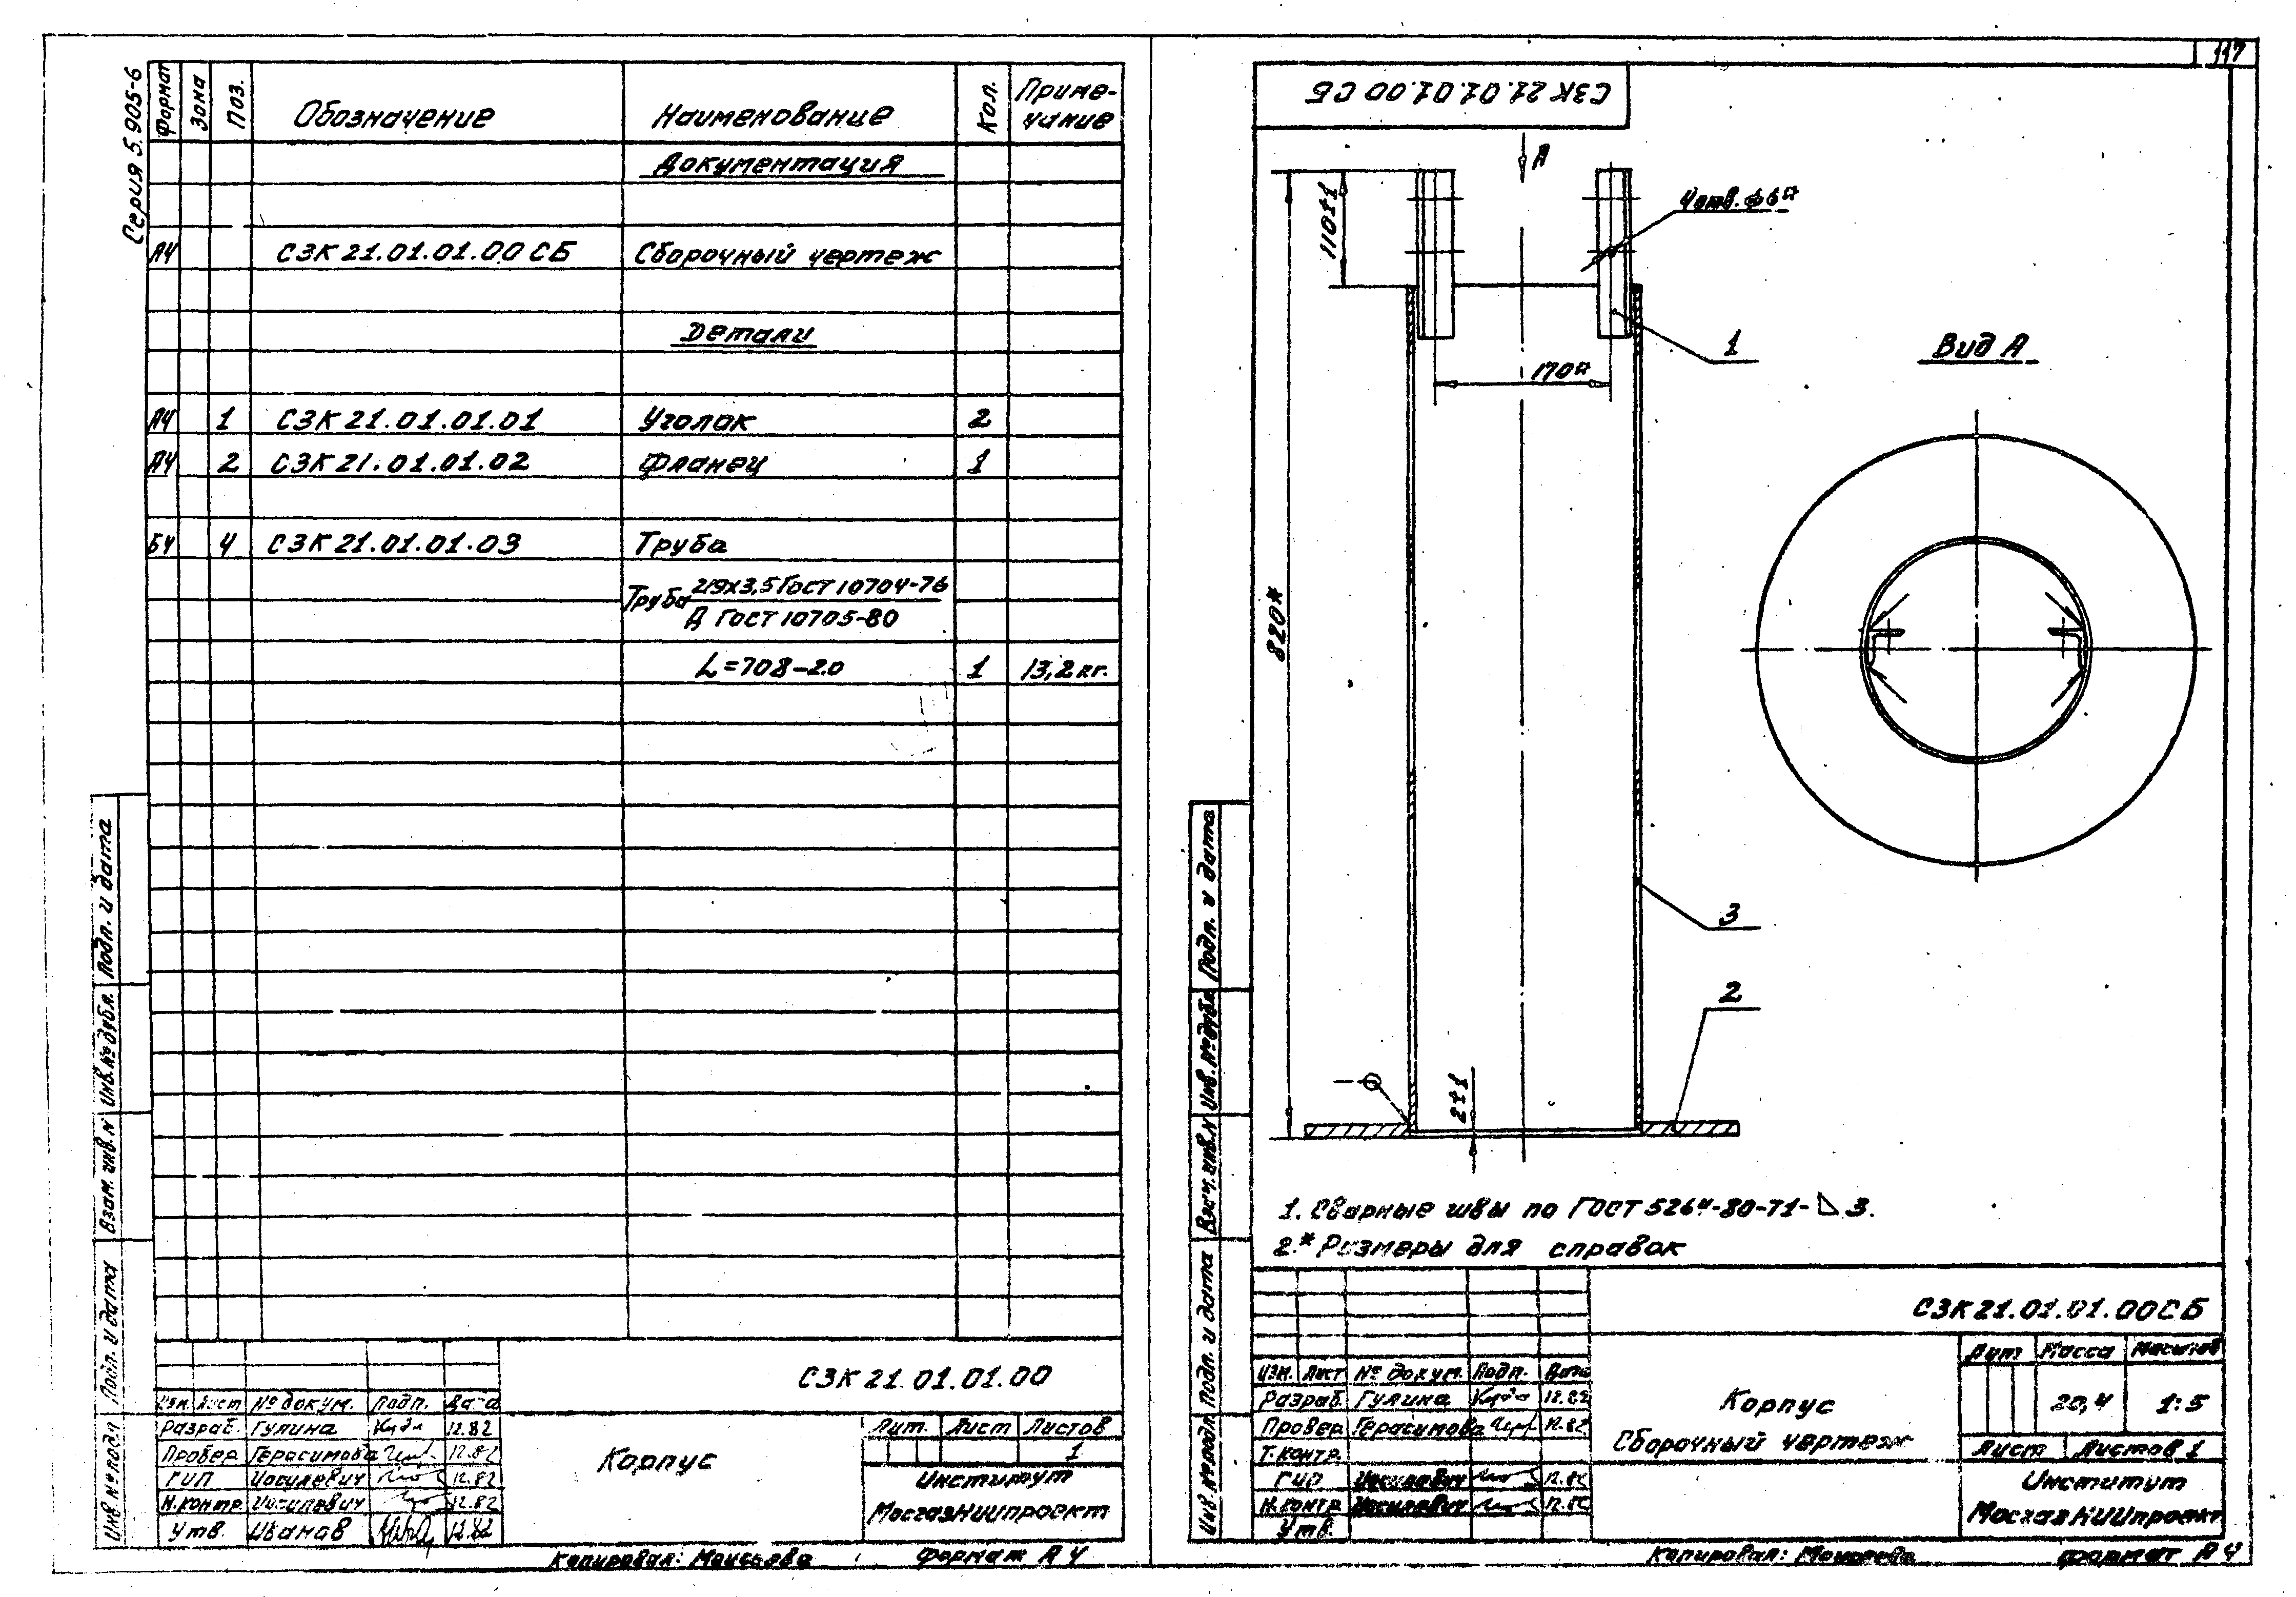 Серия 5.905-6
Формат Зона Поз. Обозначение Наименование Кол. Приме-
чание
Документация
А4 СЗК 21.01.01.00 СБ Сборочный чертеж
Детали
А4 1 СЗК 21.01.01.01 Уголок 2
А4 2 СЗК 21.01.01.02 Фланец 1
Б4 4 СЗК 21.01.01.03 Труба
Труба 219х3,5 ГОСТ 10704-76
Д ГОСТ 10705-80
L=708-2.0 1 13,2 кг.
Подп. и дата
Инв. № дубл.
Взам. инв. №
Подп. и дата
Инв. № подл
СЗК 21.01.01.00
Изм. Лист № докум. Подп. Дата
Разраб. Гулина 12.82
Провер. Герасимова 12.82
ГИП Иосилевич 12.82
Н.контр. Иосилевич 12.82
Утв. Иванов 12.82
Корпус
Лит. Лист Листов
1
Институт
МосгазНИИпроект
Копировал: Моисеева Формат А4
117
СЗК 21.01.01.00 СБ
А
110±1
4 отв. ф6*
1
170*
Вид А
820*
3
2
2±1
1. Сварные швы по ГОСТ 5264-80-Т1-◺ 3.
2.* Размеры для справок
Подп. и дата
Инв. № дубл.
Взам. инв. №
Подп. и дата
Инв. № подл
СЗК 21.01.01.00 СБ
Изм. Лист № докум. Подп. Дата
Разраб. Гулина 12.82
Провер. Герасимова 12.82
Т.контр.
ГИП Иосилевич 12.82
Н.контр. Иосилевич 12.82
Утв.
Корпус
Сборочный чертеж
Лит Масса Масштаб
20,4 1:5
Лист Листов 1
Институт
МосгазНИИпроект
Копировал: Моисеева Формат А4